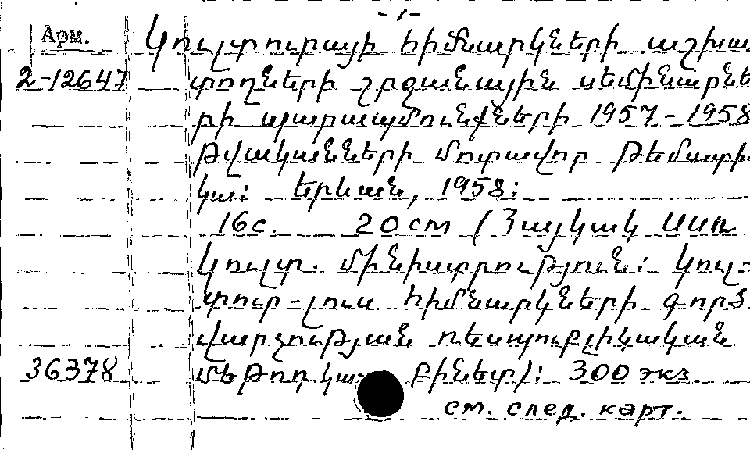 - 1 -
Арм. Կուլտուրայի հիմնարկների աշխա
2-12647 տողների շրջանային սեմինարնե
րի պարապմունքների 1957-1958
թվականների մոտավոր թեմատի
կա: Երևան, 1958:
16с. 20cm (Հայկակ ՍՍՌ
Կուլտ. մինիստրություն: Կուլ-
տուր-լուս հիմնարկների գործ.
վարչության ռեսպուբլիկական
36378 մեթոդ կա բինետ): 300 экз.
см. след. карт.